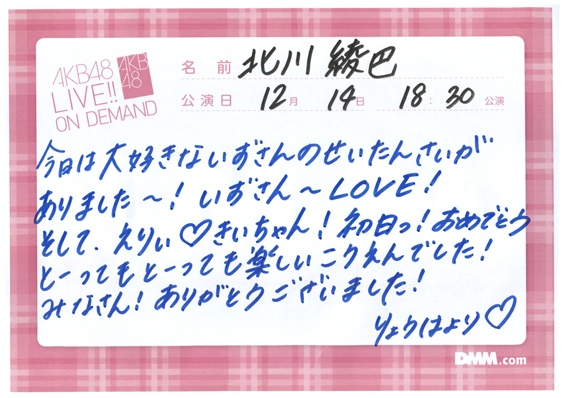 AKB48
LIVE!!
ON DEMAND
AKB
48
名前 北川 綾巴
公演日 12月 14日 18:30公演
今日は大好きないずさんのせいたんさいが
ありました〜!いずさん〜LOVE!
そして、えりぃ♡きぃちゃん!初日っ!おめでとう
とーってもとーっても楽しいこうえんでした!
みなさん!ありがとうございました!
りょうはより♡
DMM.com